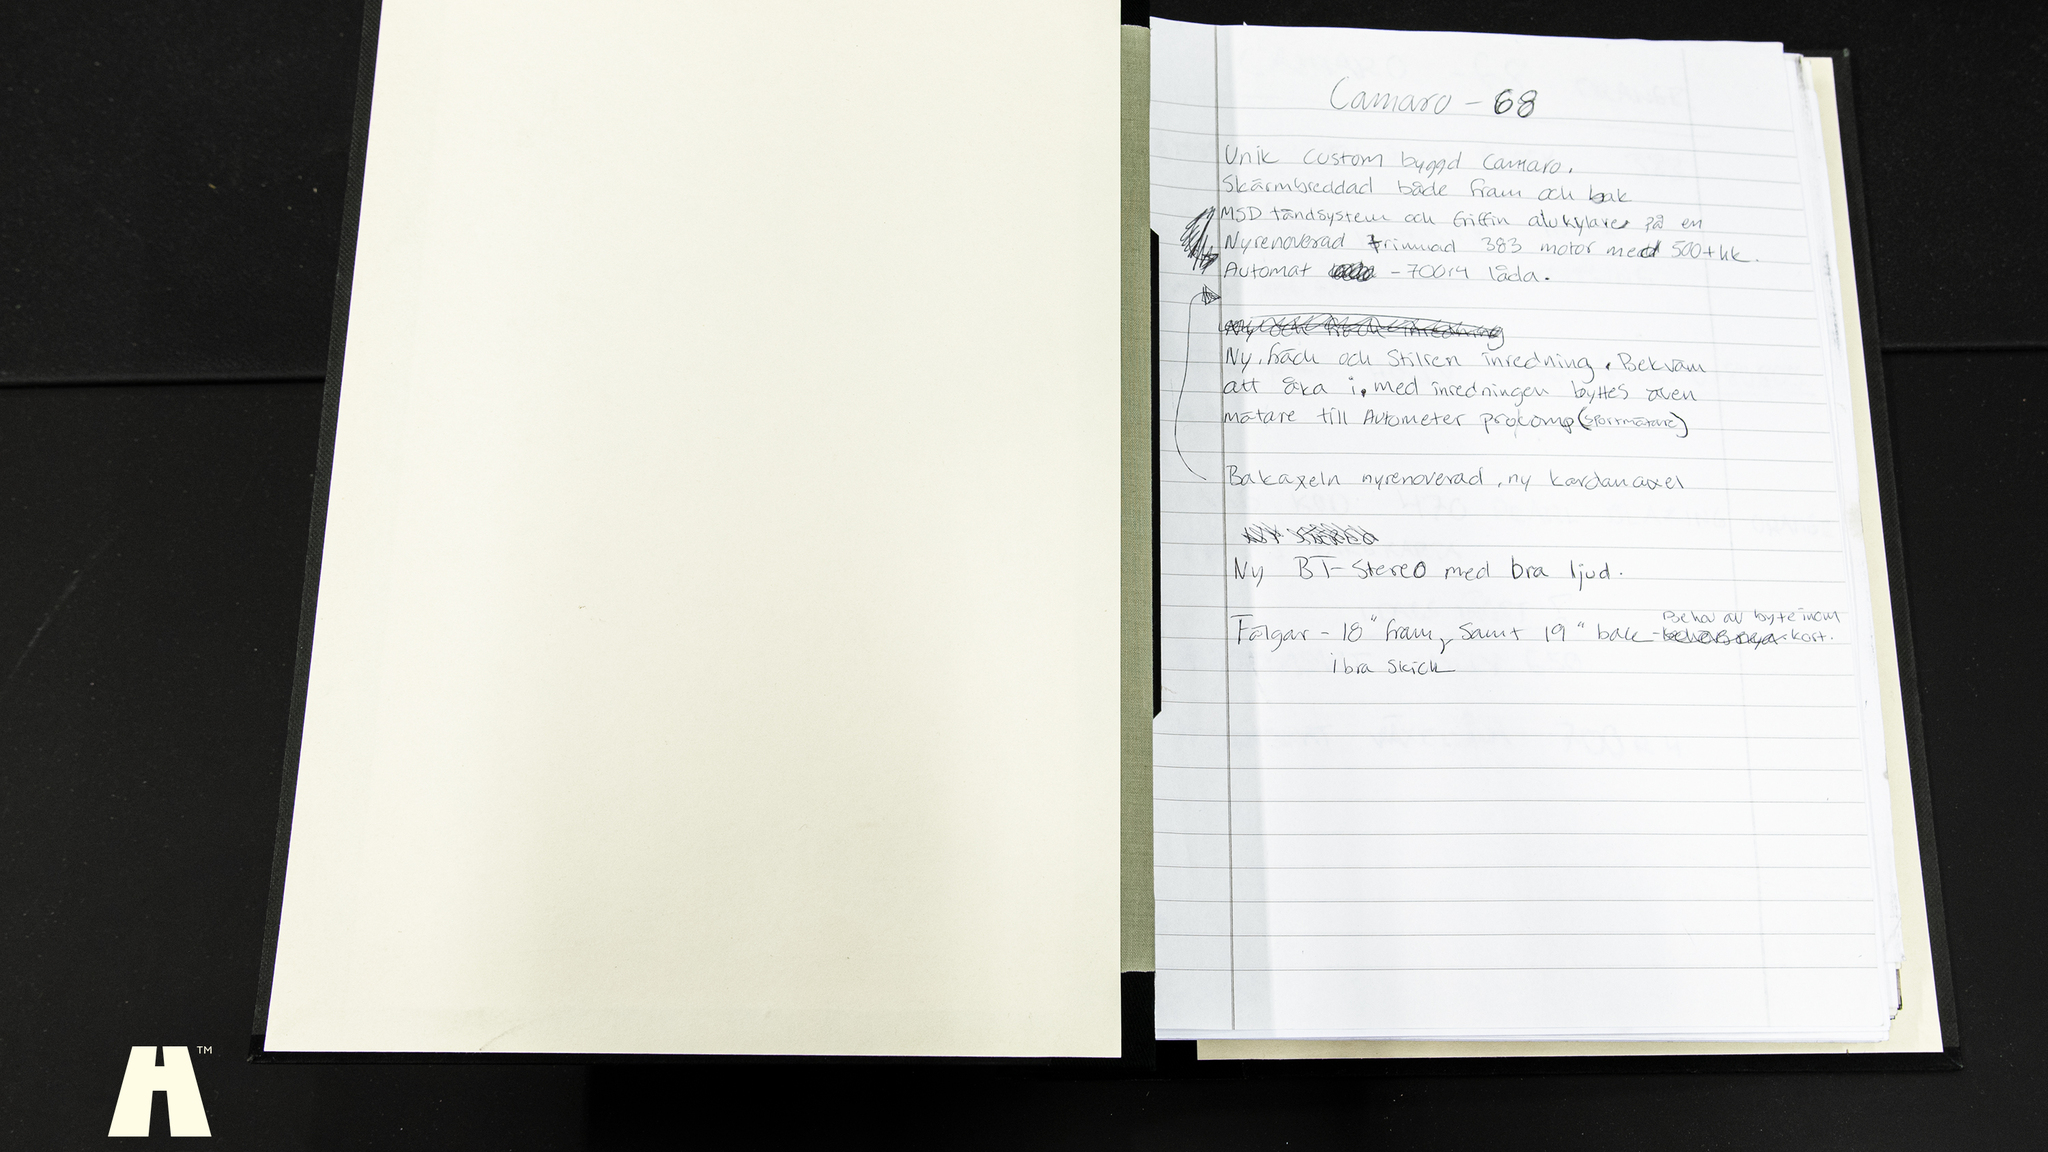 Camaro - 68
Unik custom byggd Camaro.
Skärmbreddad både fram och bak
MSD tändsystem och Griffin alukylare på en
Nyrenoverad trimmad 383 motor med 500+ hk.
Automat - 700r4 låda.
Ny och fräch inredning
Ny, fräch och Stilren inredning. Bekväm
att åka i, med inredningen byttes även
mätare till Autometer procomp (sportmätare)
Bakaxeln nyrenoverad, ny kardanaxel
Ny BT-Stereo med bra ljud.
Behov av byte inom
Fälgar - 18" fram, samt 19" bak - kort.
i bra skick
TM